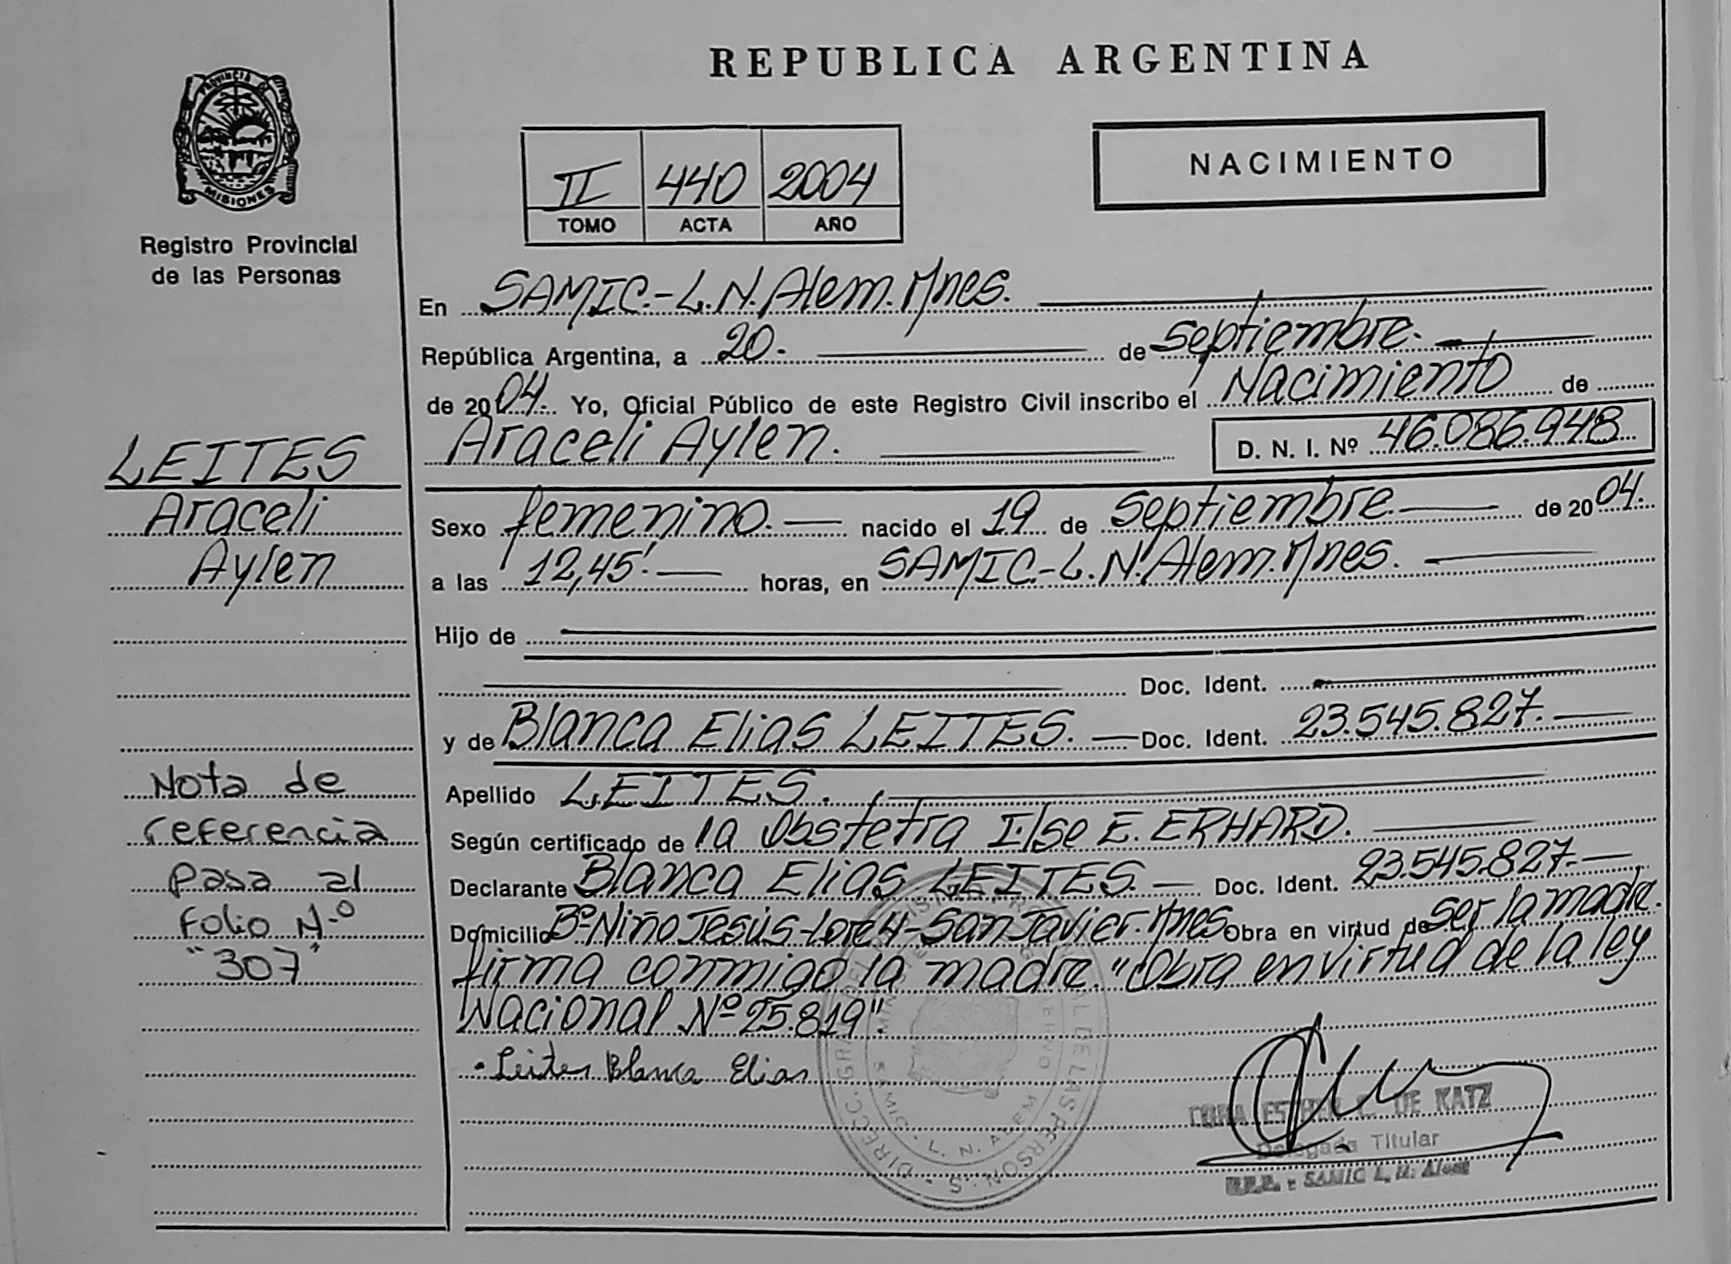 REPUBLICA ARGENTINA
PROVINCIA DE
MISIONES
Registro Provincial
de las Personas
II 440 2004
TOMO ACTA AÑO
NACIMIENTO
En SAMIC.-L.N.Alem.Mnes.
República Argentina, a 20.- de septiembre.-
de 2004. Yo, Oficial Público de este Registro Civil inscribo el Nacimiento de
Araceli Aylen. D. N. I. Nº 46.086.948
LEITES
Araceli
Aylen
Sexo femenino.- nacido el 19 de septiembre.- de 2004.
a las 12,45'.- horas, en SAMIC.-L.N.Alem.Mnes.
Hijo de
Doc. Ident.
y de Blanca Elias LEITES.- Doc. Ident. 23.545.827.-
Apellido LEITES.
Según certificado de la Obstetra Ilse E. ERHARD.
Declarante Blanca Elias LEITES.- Doc. Ident. 23.545.827.-
Domicilio Bº Niño Jesús-Lote 4-San Javier.Mnes Obra en virtud de ser la madre.
firma conmigo la madre. "Obra en virtud de la ley
Nacional Nº 25.819".
Leites Blanca Elias
Nota de
referencia
pasa al
Folio N.º
"307"
DIREC. GRAL DE LAS PERSONAS
SAMIC - L. N. ALEM
ESTHER C. DE KATZ
Delegada Titular
SAMIC L. N. Alem